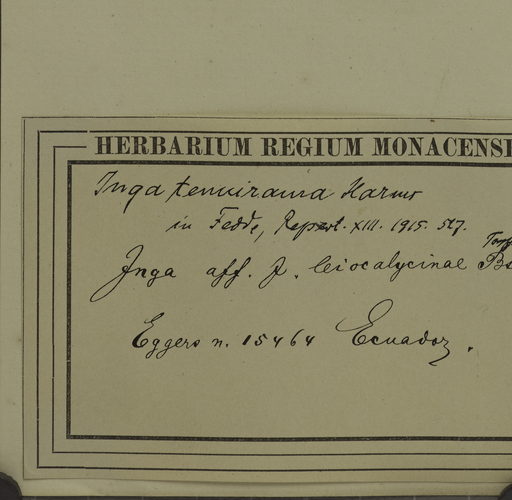 HERBARIUM REGIUM MONACENS
Inga tenuirama Harms
in Fedde, Repert. XIII. 1915. 527.
Inga aff. J. leiocalycinae
Eggers n. 15464 Ecuador.